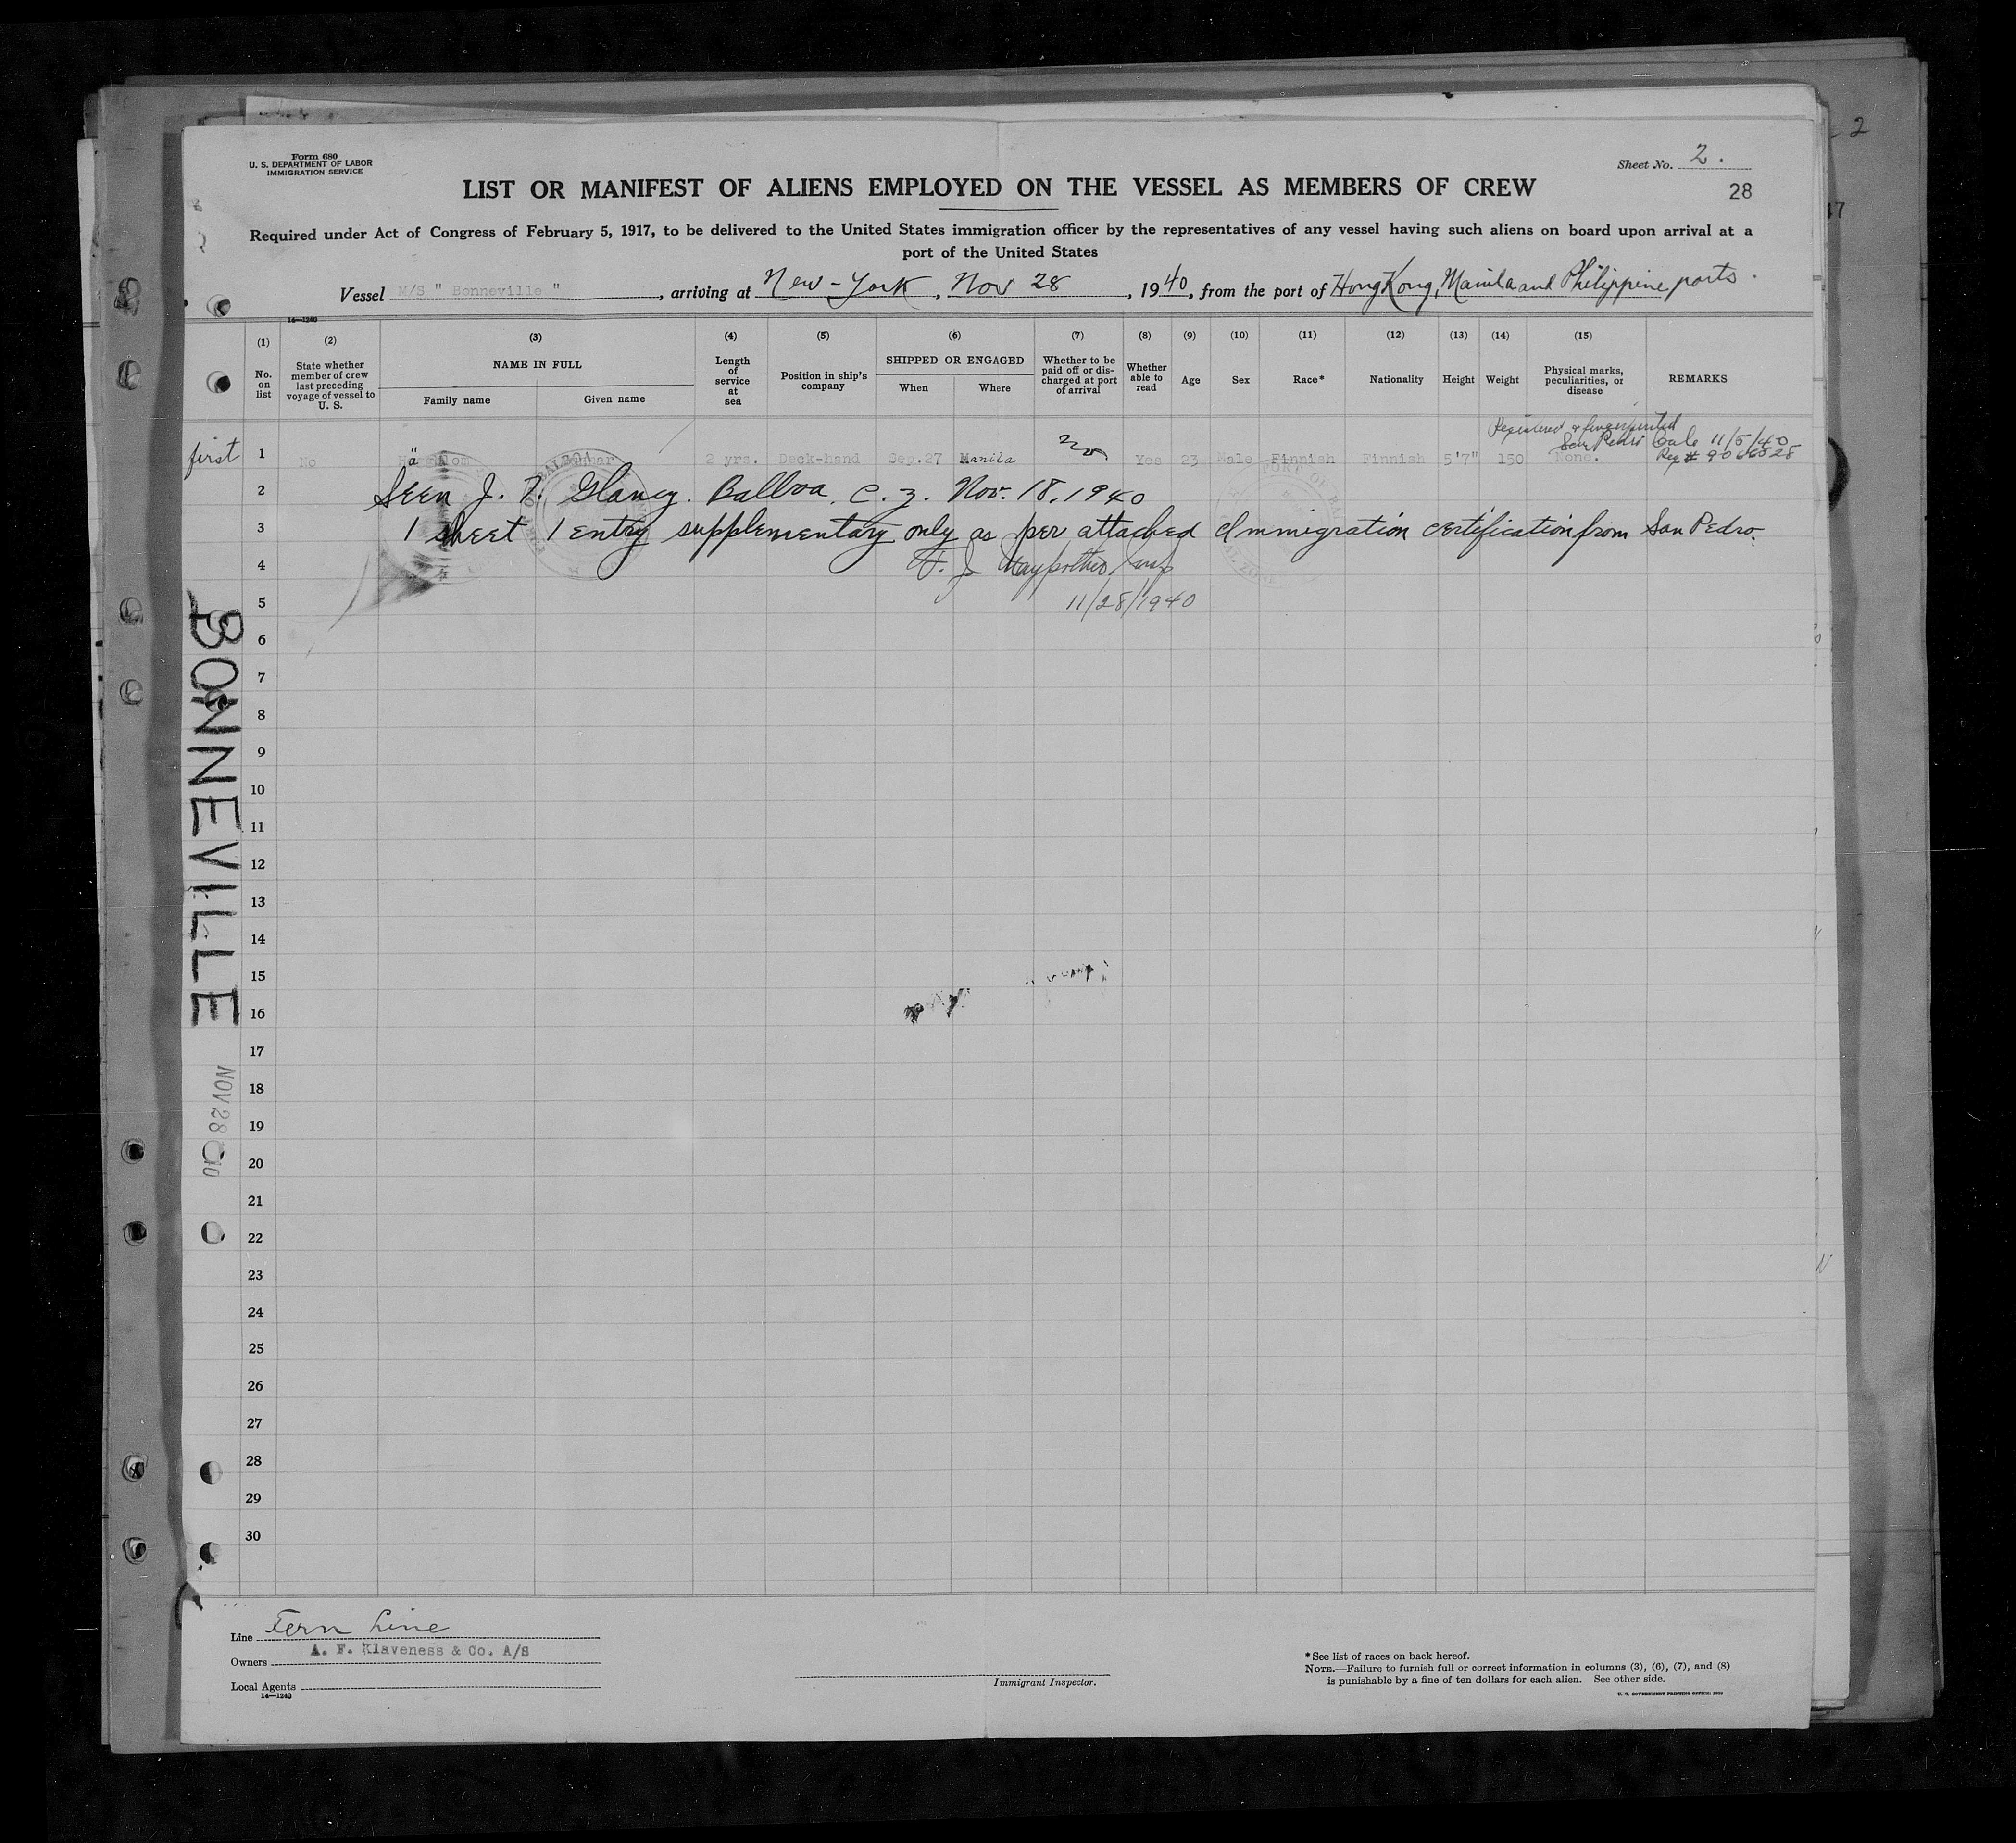 2
Form 680
U. S. DEPARTMENT OF LABOR
IMMIGRATION SERVICE
Sheet No. 2.
LIST OR MANIFEST OF ALIENS EMPLOYED ON THE VESSEL AS MEMBERS OF CREW
28
17
Required under Act of Congress of February 5, 1917, to be delivered to the United States immigration officer by the representatives of any vessel having such aliens on board upon arrival at a
port of the United States
Vessel M/S " Bonneville ", arriving at New-York, Nov 28, 1940, from the port of HongKong, Manila and Philippine ports.
14—1240
(1) No. on list
(2) State whether member of crew last preceding voyage of vessel to U. S.
(3) NAME IN FULL Family name Given name
(4) Length of service at sea
(5) Position in ship's company
(6) SHIPPED OR ENGAGED When Where
(7) Whether to be paid off or discharged at port of arrival
(8) Whether able to read
(9) Age
(10) Sex
(11) Race*
(12) Nationality
(13) Height
(14) Weight
(15) Physical marks, peculiarities, or disease
REMARKS
Registered & fingerprinted
San Pedro Cale 11/5/40
Reg # 9066828
first 1 No 2 yrs. Deck-hand Sep.27 Manila no Yes 23 Male Finnish Finnish 5'7" 150 None.
2 Seen J. T. Glancy. Balboa, C. Z. Nov. 18, 1940
3 1 sheet 1 entry supplementary only as per attached Immigration certification from San Pedro.
4
5 11/28/1940
6
7
8
9
10
11
12
13
14
15
16
17
18
19
20
21
22
23
24
25
26
27
28
29
30
BONNEVILLE
NOV 28
Line Fern Line
Owners A. F. Klaveness & Co. A/S
Local Agents
14—1240
Immigrant Inspector.
* See list of races on back hereof.
NOTE.—Failure to furnish full or correct information in columns (3), (6), (7), and (8)
is punishable by a fine of ten dollars for each alien. See other side.